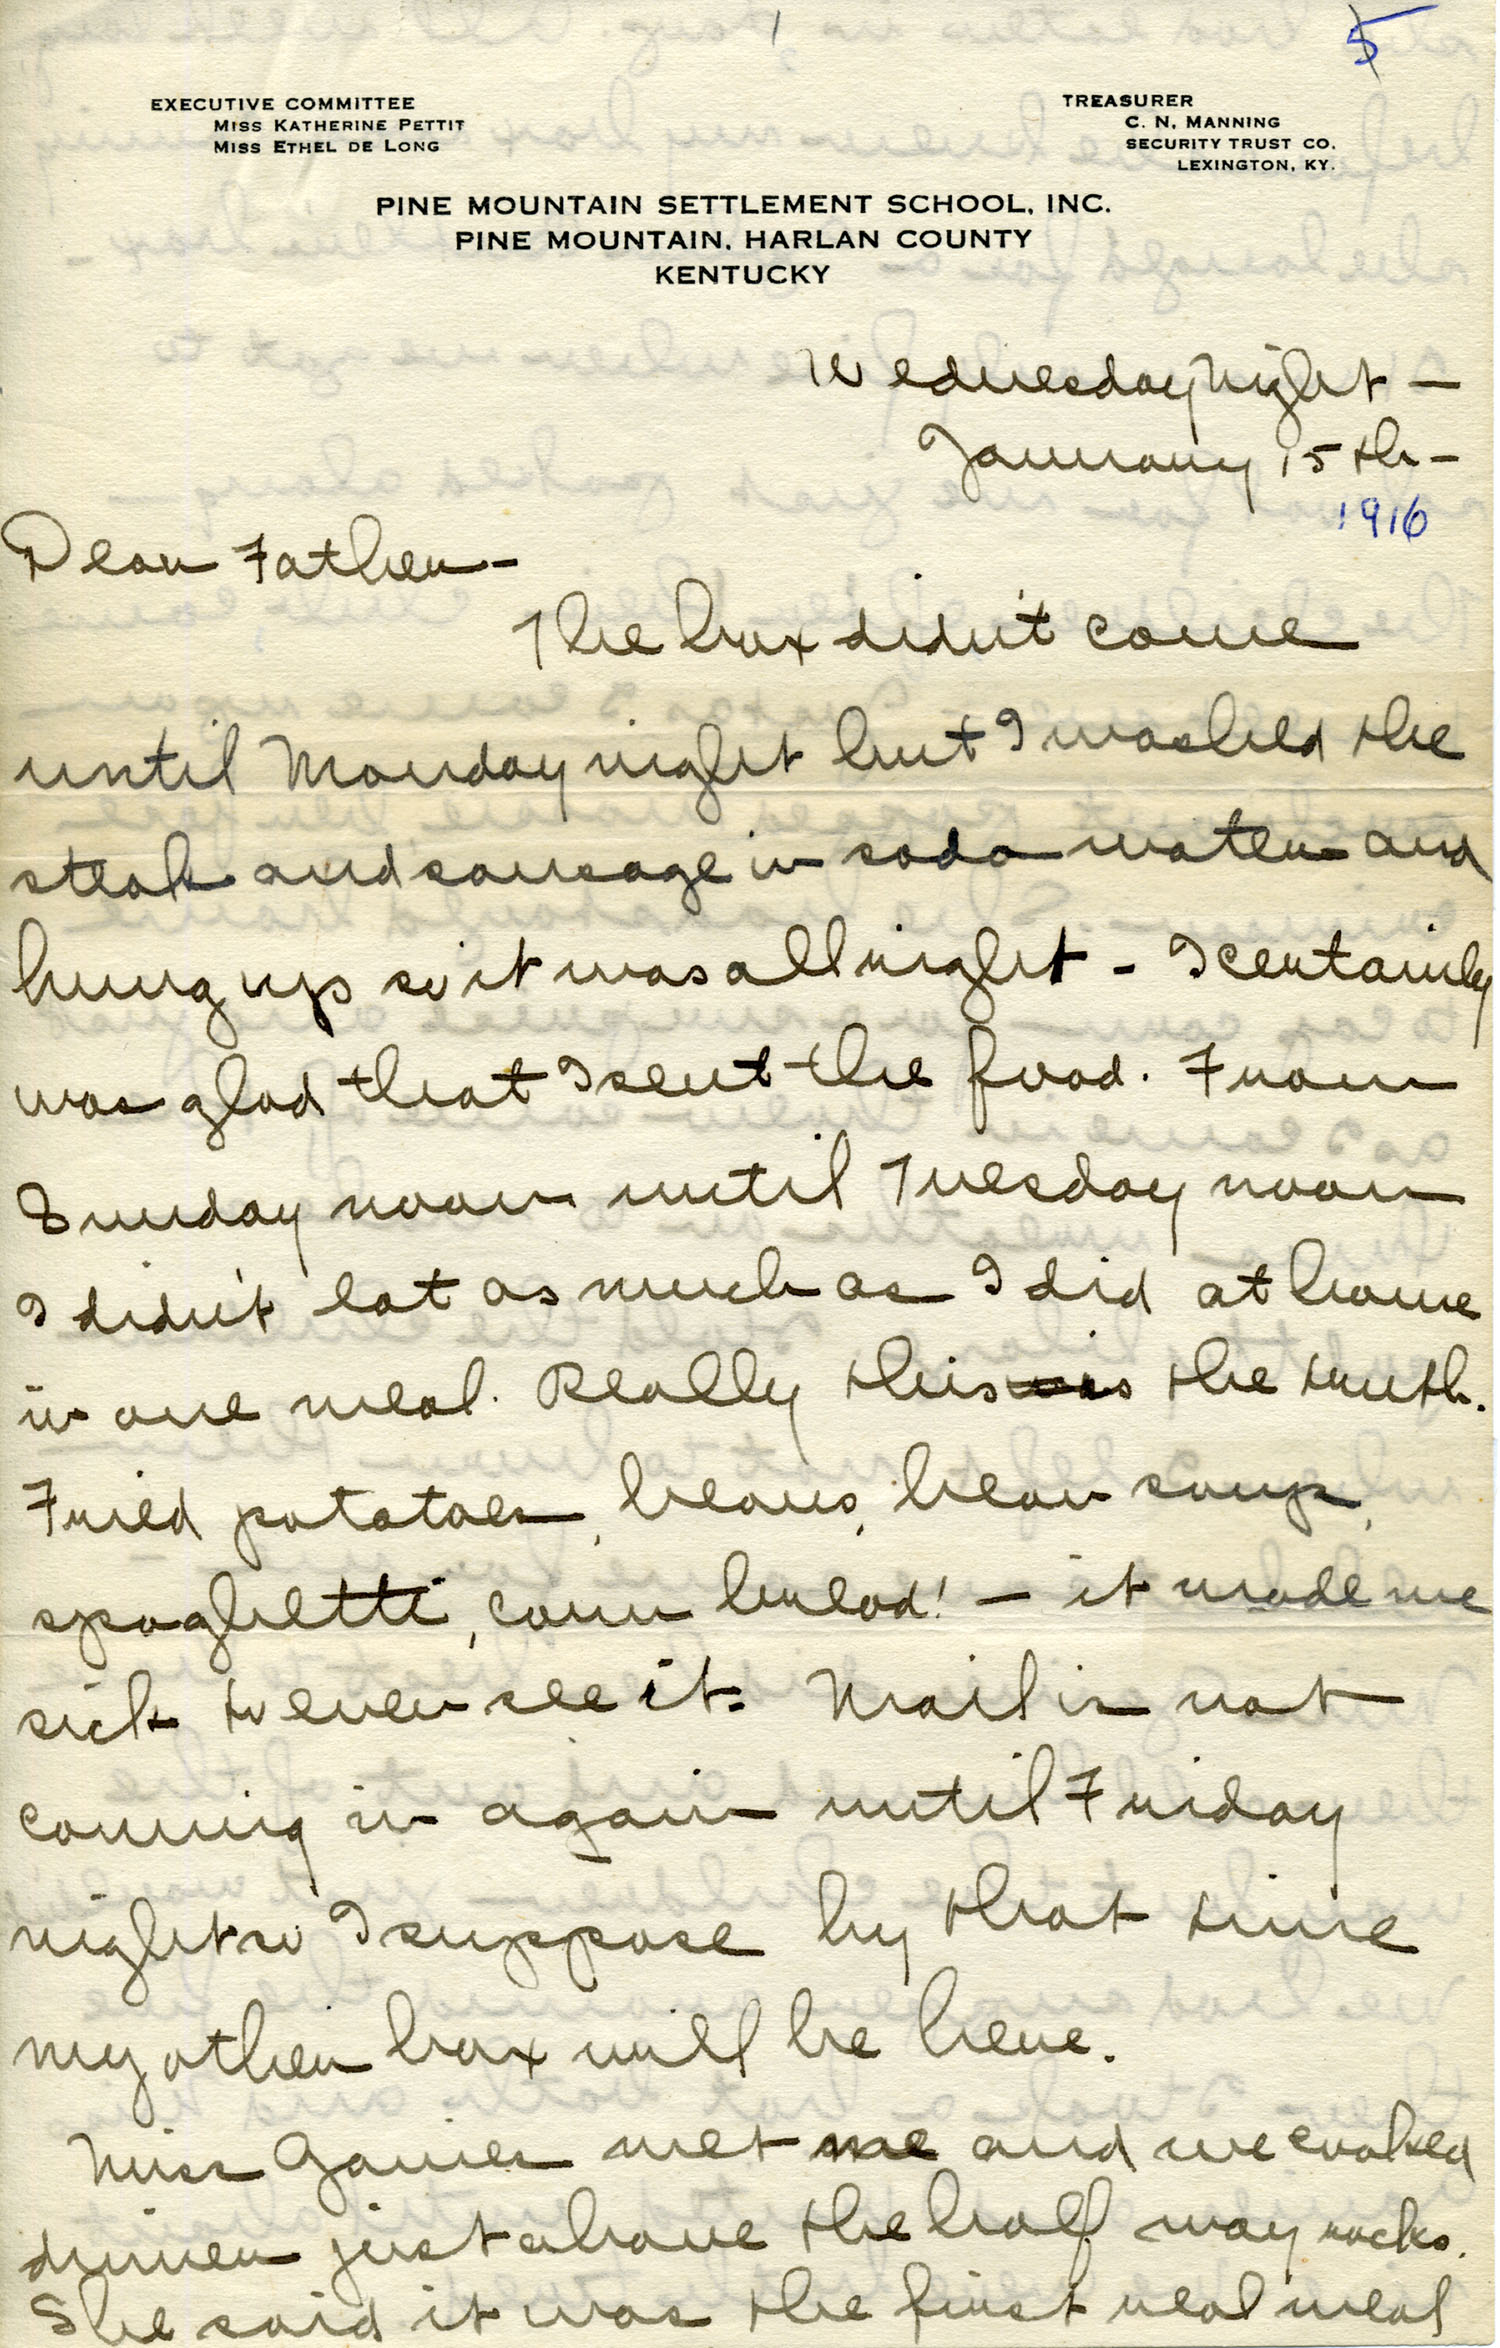 5
EXECUTIVE COMMITTEE
MISS KATHERINE PETTIT
MISS ETHEL DE LONG
TREASURER
C. N. MANNING
SECURITY TRUST CO.
LEXINGTON, KY.
PINE MOUNTAIN SETTLEMENT SCHOOL, INC.
PINE MOUNTAIN, HARLAN COUNTY
KENTUCKY
Wednesday Night —
January 15th —
1916
Dear Father —
The box didn't come
until Monday night but I washed the
steak and sausage in soda water and
hung up so it was all right - I certainly
was glad that I sent the food. From
Sunday noon until Tuesday noon
I didn't eat as much as I did at home
in one meal. Really this is the truth.
Fried potatoes, beans, bean soup,
spaghetti, corn bread! — it made me
sick to even see it. Mail is not
coming in again until Friday
night so I suppose by that time
my other box will be here.
Miss Gaines met me and we cooked
dinner just above the half way rocks.
She said it was the first real meal